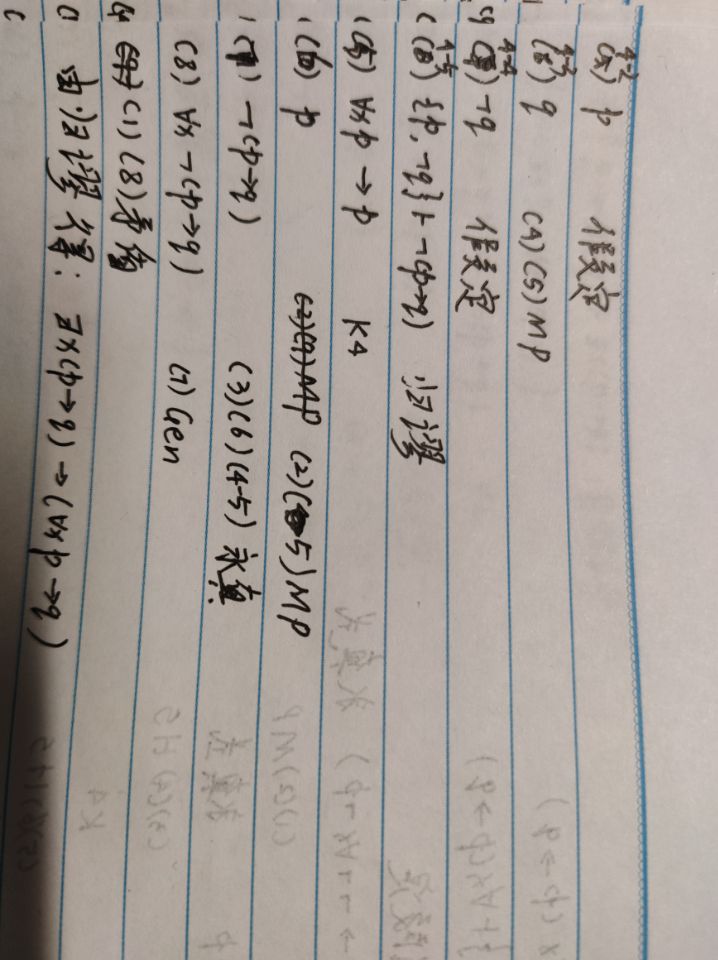 4-2
(5) p 假定
4-3
(6) q (4)(5)MP
4-4
(7) ¬q 假定
4-5
(8) {p,¬q}⊢¬(p→q) 归谬
(5) ∀xp→p K4
(6) p (2)(9)MP (2)(5)MP
(7) ¬(p→q) (3)(6)(4-5) 永真
(8) ∀x¬(p→q) (7)Gen
(9) (1)(8)矛盾
由归谬得: ∃x(p→q)→(∀xp→q)